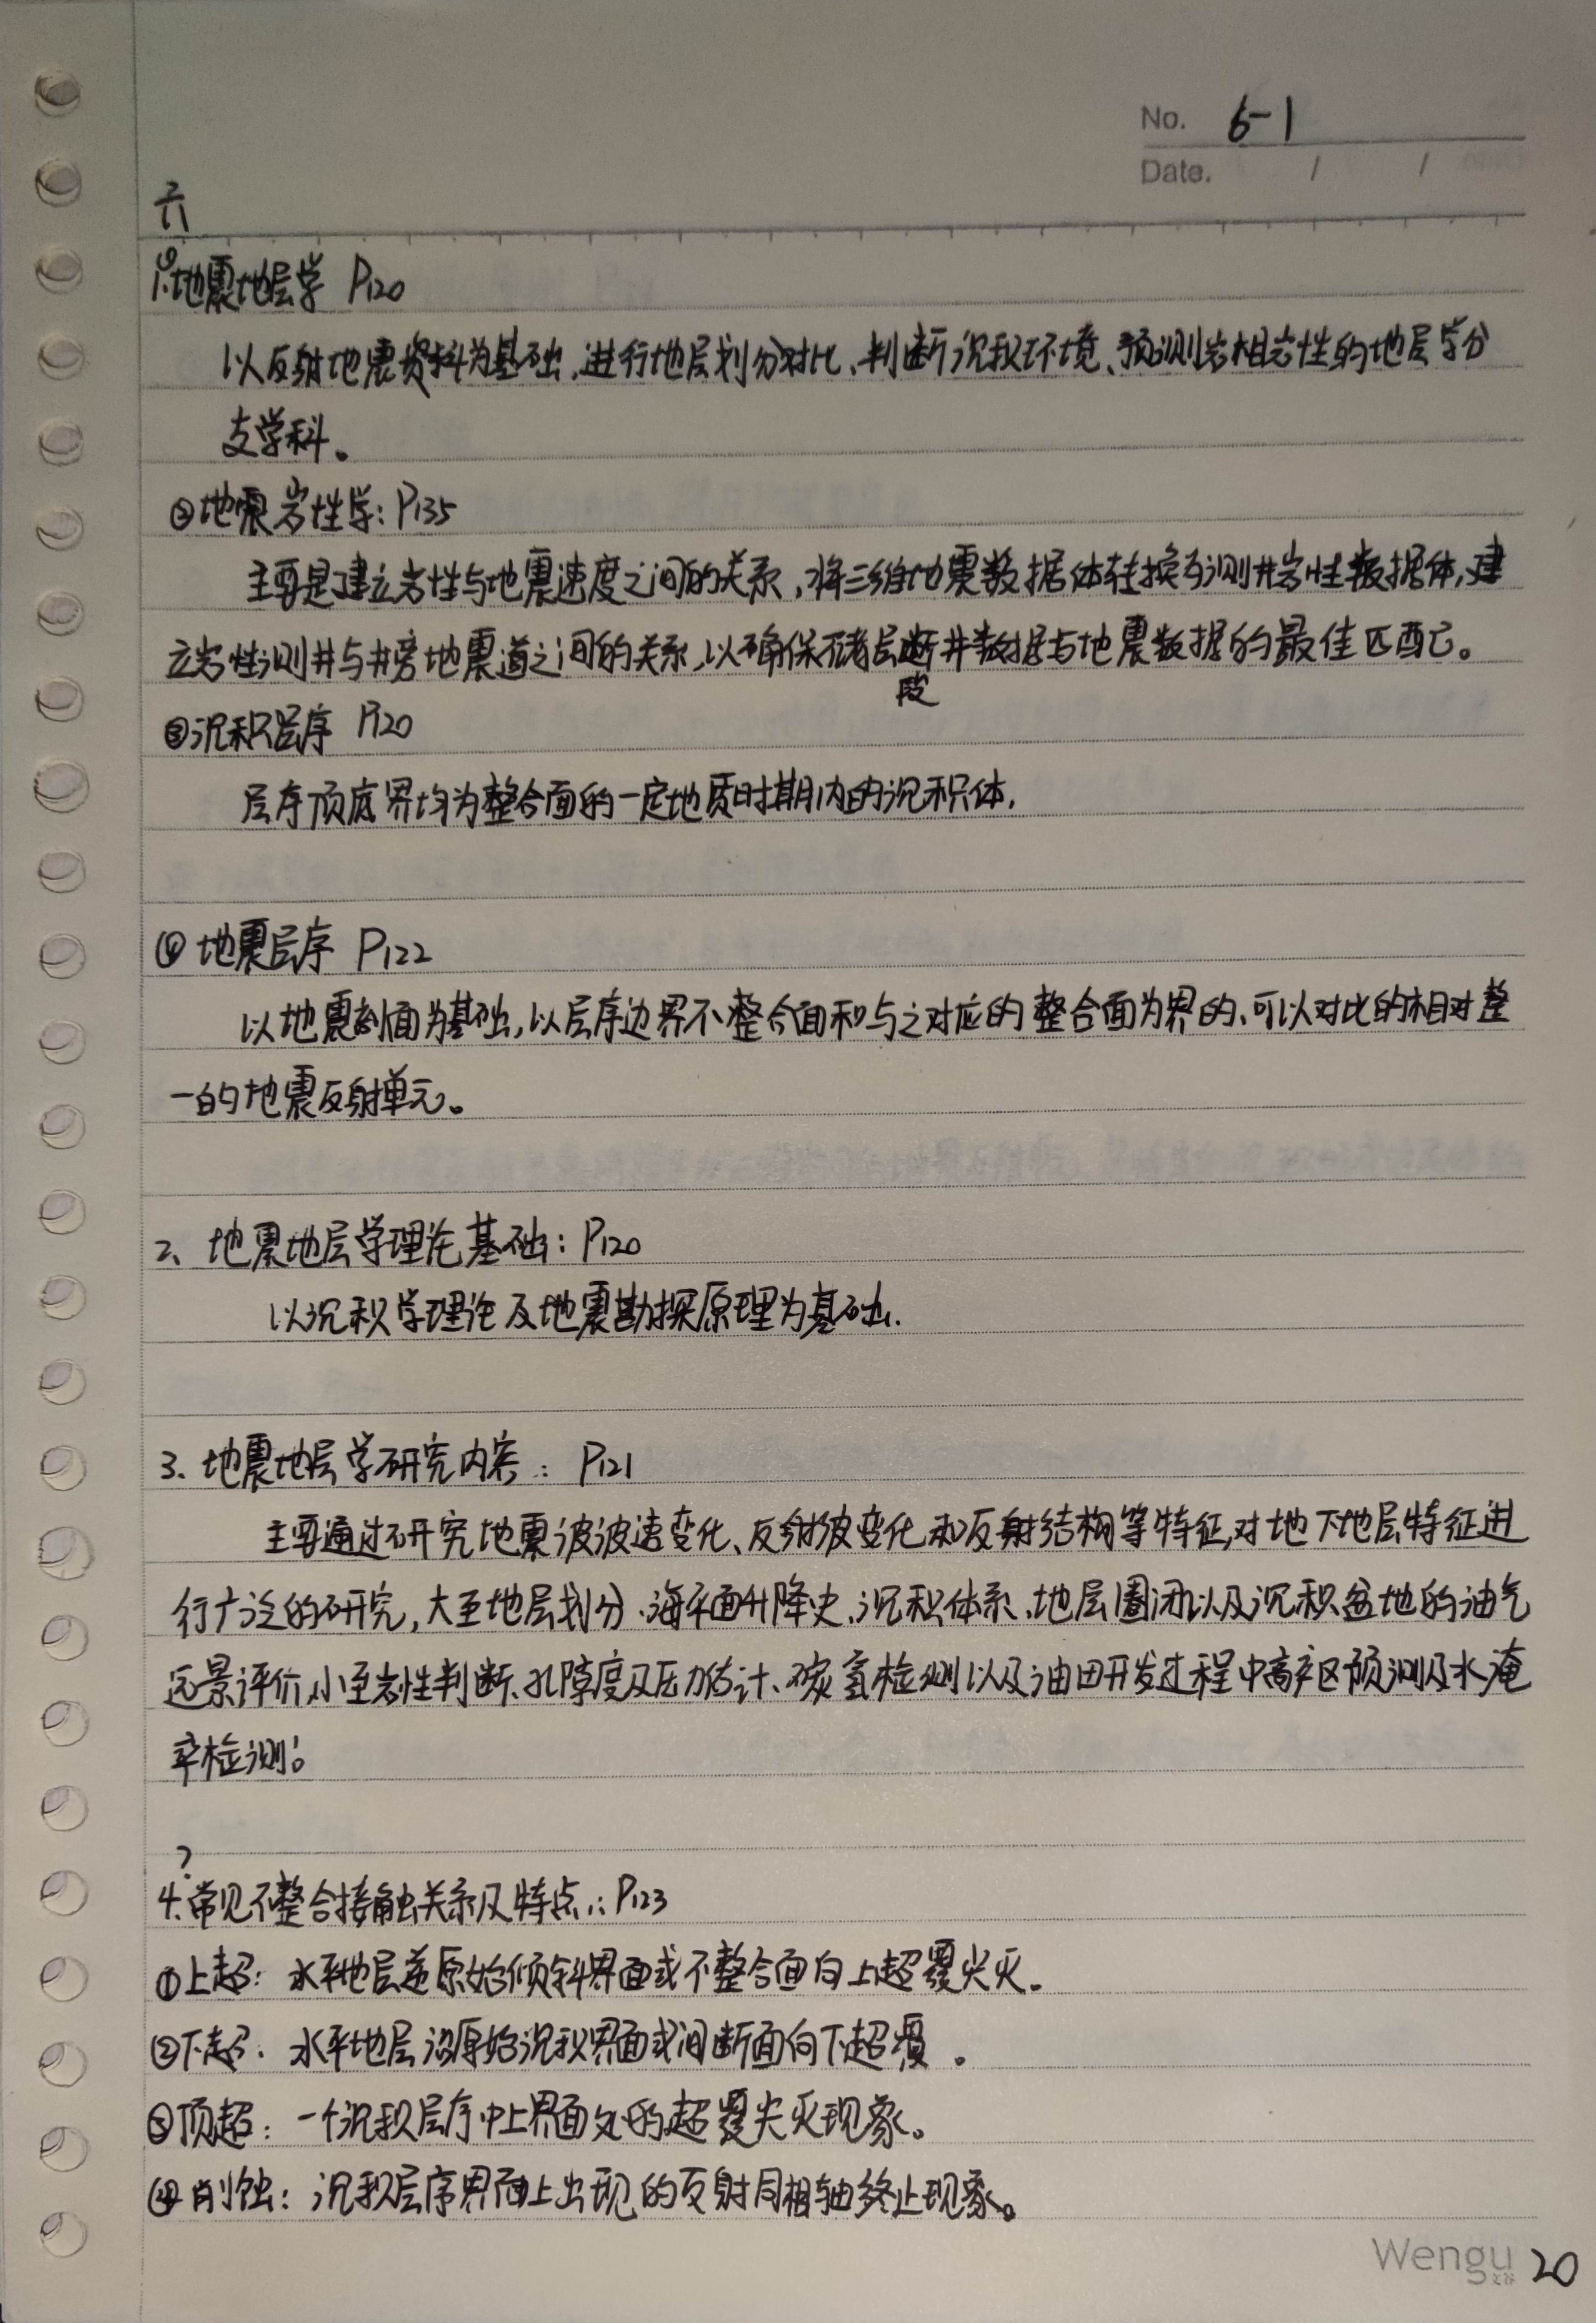 No. 6-1
Date. / /
六
1.①地震地层学 P120
以反射地震资料为基础,进行地层划分对比、判断沉积环境、预测岩相岩性的地层学分
支学科。
②地震岩性学:P135
主要是建立岩性与地震速度之间的关系,将三维地震数据体转换为测井岩性数据体,建
立岩性测井与井旁地震道之间的关系,以确保储层段井数据与地震数据的最佳匹配。
③沉积层序 P120
层序顶底界均为整合面的一定地质时期内的沉积体.
④地震层序 P122
以地震剖面为基础,以层序边界不整合面和与之对应的整合面为界的、可以对比的相对整
一的地震反射单元。
2、地震地层学理论基础:P120
以沉积学理论及地震勘探原理为基础.
3.地震地层学研究内容:P121
主要通过研究地震波波速变化、反射波变化和反射结构等特征,对地下地层特征进
行广泛的研究,大至地层划分、海平面升降史、沉积体系、地层圈闭以及沉积盆地的油气
远景评价,小至岩性判断、孔隙度及压力估计、碳氢检测以及油田开发过程中高产区预测及水淹
率检测。
?
4.常见不整合接触关系及特点:P123
①上超:水平地层逆原始倾斜界面或不整合面向上超覆尖灭。
②下超:水平地层沿原始沉积界面或间断面向下超覆。
③顶超:一个沉积层序中上界面处的超覆尖灭现象。
④削蚀:沉积层序界面上出现的反射同相轴终止现象。
Wengu 20